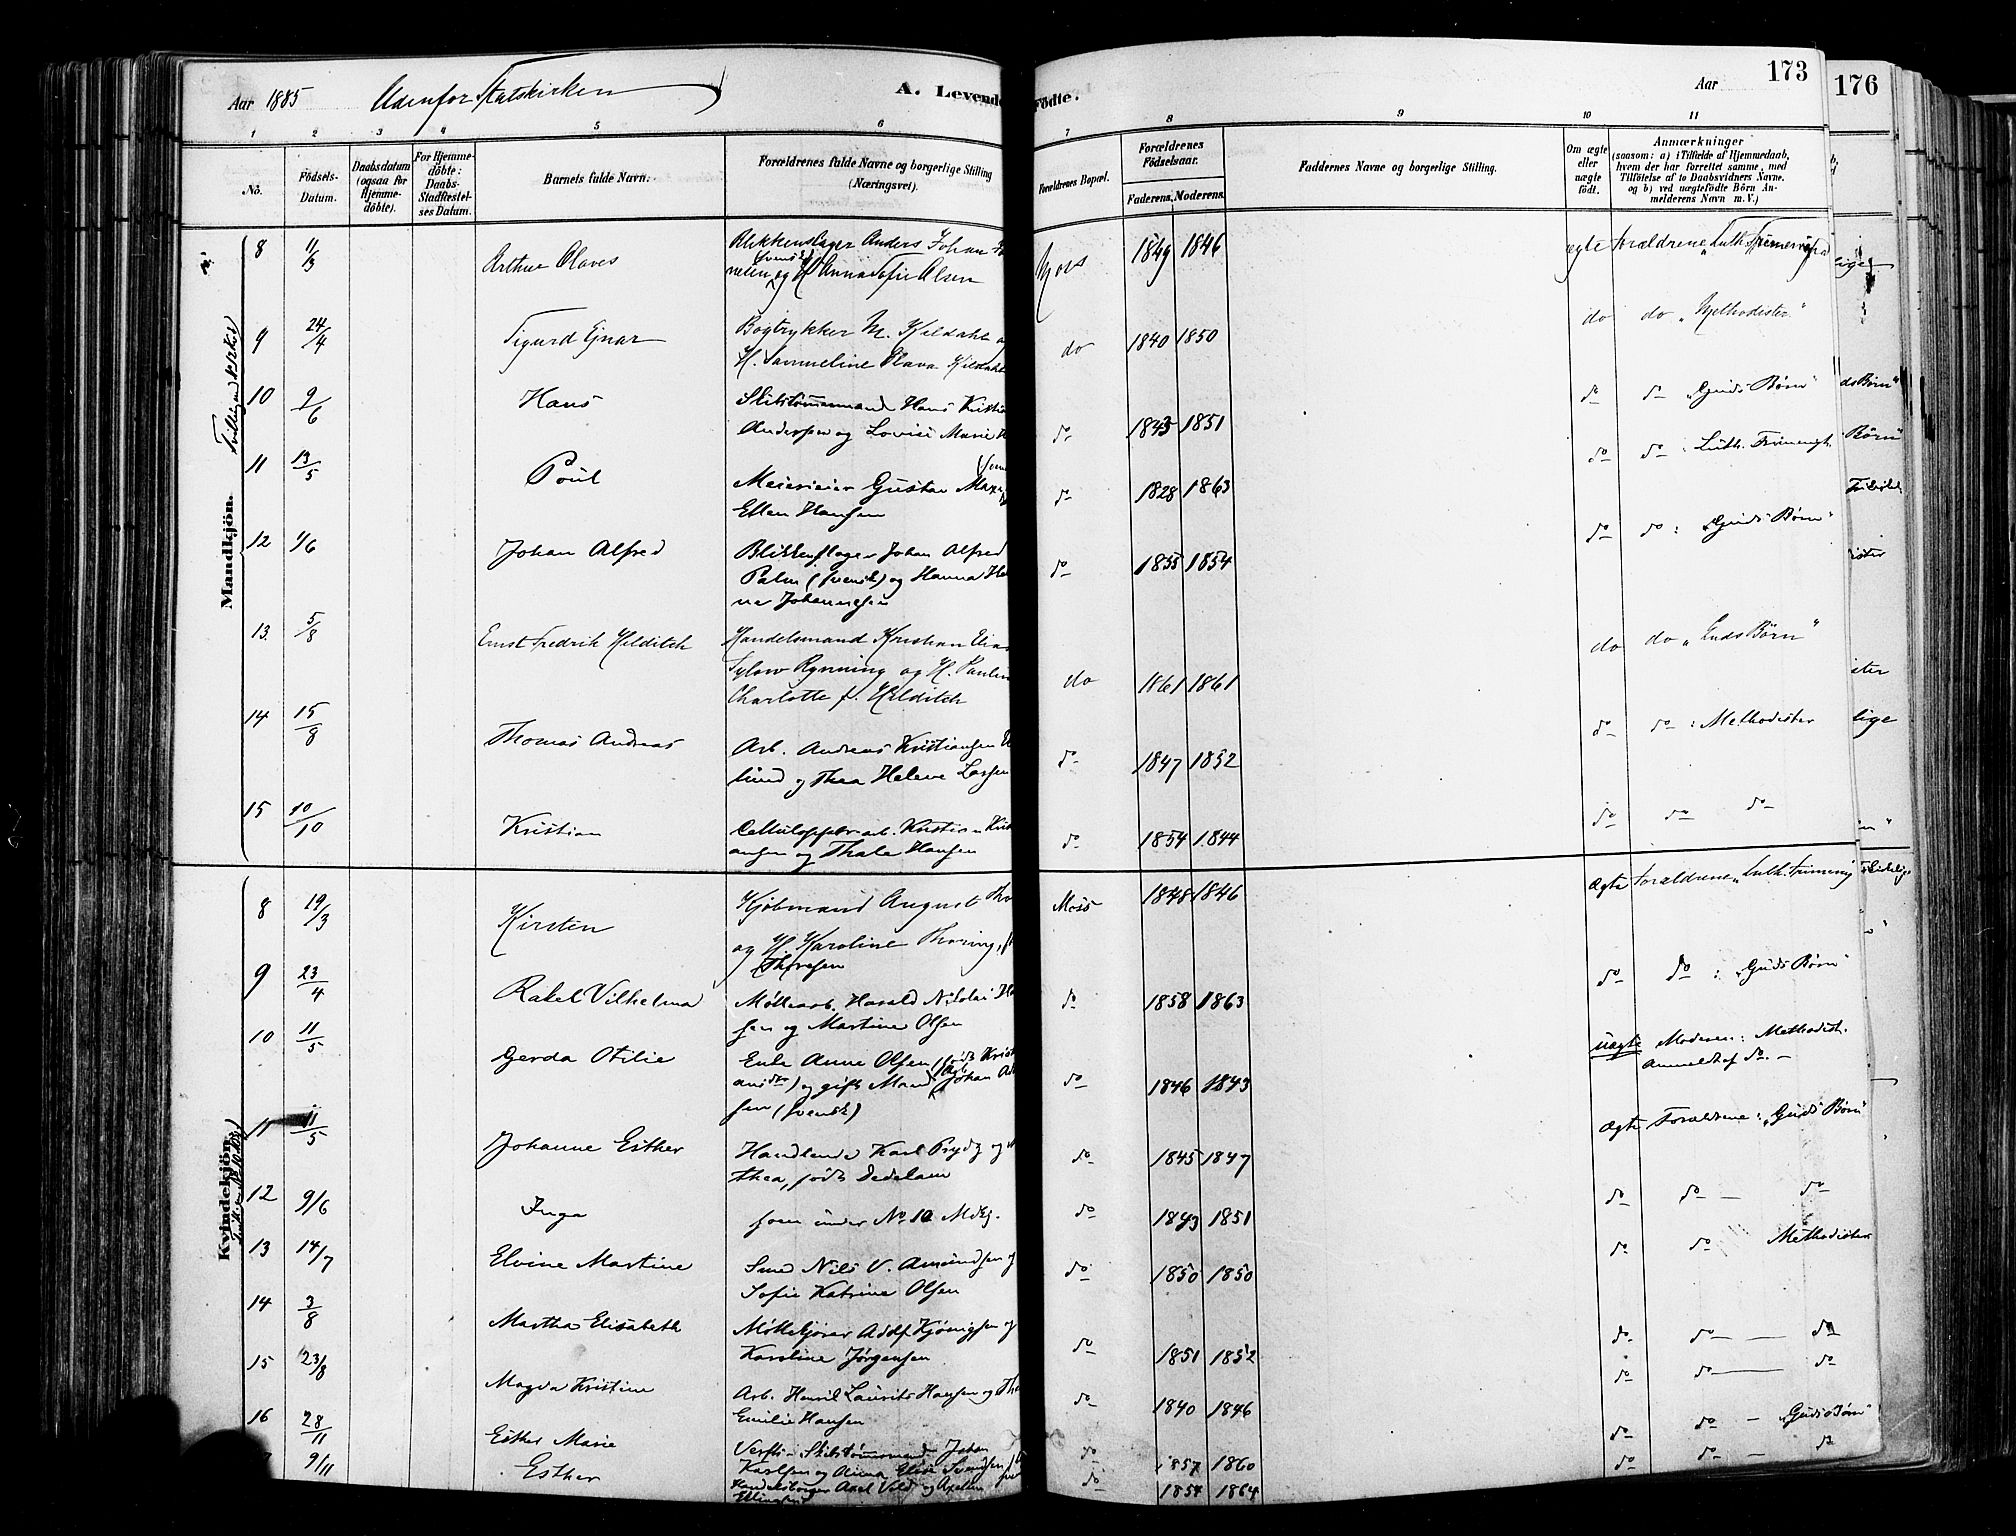 Aar 1885 Udenfor Statskirken A. Levende
Fødte. Aar 173
176
1 2 3 4 5 6 7 8 9 10 11
No. Födsels-Datum. Daabsdatum (ogsaa for Hjemmedöbte). For Hjemmedöbte: Daabs-Stadfæstelses Datum. Barnets fulde Navn. Forældrenes fulde Navne og borgerlige Stilling (Næringsvei). Forældrenes Bopæl. Forældrenes Födselsaar. Faderens. Moderens. Faddernes Navne og borgerlige Stilling. Om ægte eller uægte födt. Anmærkninger (saasom: a) i Tilfælde af Hjemmedaab, hvem der har forrettet samme, med Tilföielse af to Daabsvidners Navne, og b) ved uægtefödte Börn Anmelderens Navn m. V.)
Mandkjön.
8 11/3 Arthur Olaves Blikkenslager Anders Johan
(svensk) og H. Anna Sofie Olsen Moss 1849 1846 ægte Forældrene "Luth. Frimenigh
9 24/4 Sigurd Ejnar Bogtrykker M. Kildahl og
H. Samueline Olava Kildahl do 1840 1850 do do "Methodister"
10 9/6 Hans Skibstømmermand Hans Kristia
Anderssen og Lovise Marie H do 1843 1851 do do "Guds Børn"
11 13/5 Poul Meierieier Gustav
Ellen Hansen do 1828 1863 do do : Luth. Frimengh.
12 1/6 Johan Alfred Blikkenslager Johan Alfred
Palm (svensk) og Hanna He
ne Johannesen do 1855 1854 do do : "Guds Børn"
13 5/8 Ernst Fredrik Hilditch Handelsmand Kristian Elias
Sylow Rynning og H. Paulin
Charlotte f. Hilditch do 1861 1861 do do "Guds Børn"
14 15/8 Thomas Andreas Arb. Andreas Kristiansen
lund og Thea Helene Larsen do 1847 1852 do do : Methodister
15 10/10 Kristian Cellulosearb. Kristian Kristi
ansen og Thale Hansen do 1854 1844 do do do
Kvindekjön.
8 19/3 Kirsten Kjøbmand August Tho
og H. Karoline Thoring, f.
Thoresen Moss 1848 1846 Ægte Forældrene "Luth. Frimenig
9 23/4 Rakel Vilhelma Møllearb. Harald Nicolai Ha
sen og Martine Olsen do 1858 1863 do do : "Guds Børn"
10 11/5 Gerda Otilie Enke Anne Olsen (født Kristi
ansdtr) og gift Mand Arb. Johan
sen (svensk) do 1846 1843 uægte Moderen: Methodist.
Anmeldt af do. –
11 11/5 Johanne Esther Handlende Karl Prydz og
thea, født Dedekam do 1845 1847 ægte Forældrene : "Guds Børn"
12 9/6 Inga som under No. 10 Mdkj. do 1843 1851 do do — do
13 14/7 Elvine Martine Smed Nils V. Amundsen og
Sofie Katrine Olsen do 1850 1850 do do Methodister
14 3/8 Martha Elisabeth Møllekjører Adolf Kjønigsen og
Karoline Jørgensen do 1851 1852 do do — do
15 23/8 Magda Kristine Arb. Henrik Laurits Hansen og Th
Emilie Hansen do 1840 1846 do do — do
16 28/11 Esther Marie Verfts-Skibstømmermand Johan
Karlsen og Anna Elise Svendsen do 1857 1860 do do — "Guds Børn"
9/11 Esther Handelsborger Axel Vold og Axeline
Ellingsen do 1854 1864 do do — do